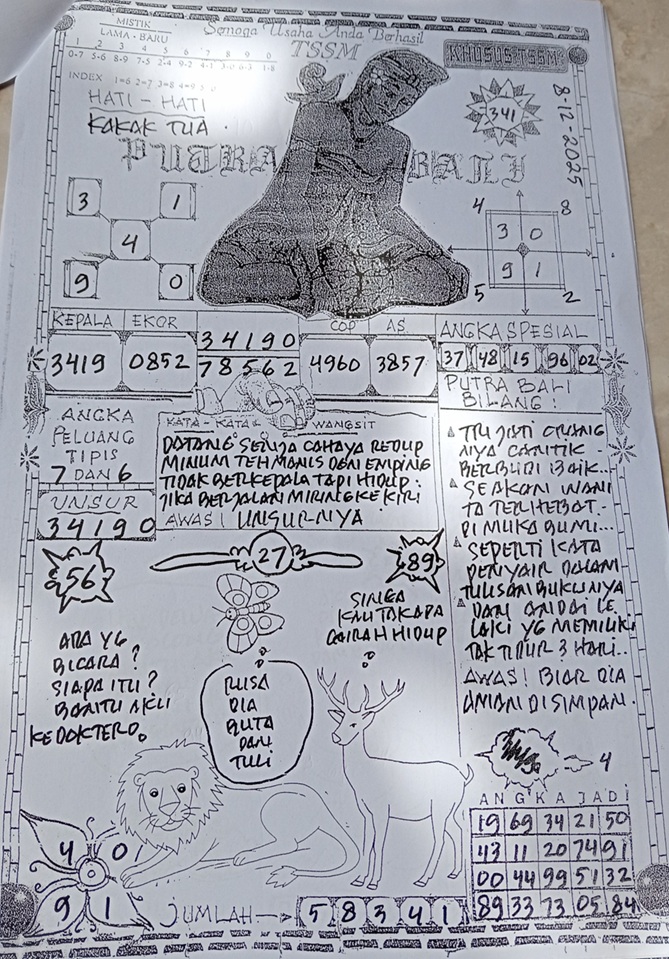 Semoga Usaha Anda Berhasil
MISTIK
LAMA - BARU
1 2 3 4 5 6 7 8 9 0
0-7 5-6 8-9 7-5 2-4 9-2 4-1 3-0 6-3 1-8
INDEX 1=6 2=7 3=8 4=9 5=0
TSSM
KHUSUS TSSM
HATI - HATI
KAKAK TUA.
341
8-12-2025
PUTRA BALI
3 1
4
9 0
4 8
3 0
9 1
5 2
KEPALA EKOR 34190 COP AS ANGKA SPESIAL
3419 0852 78562 4960 3857 37 48 15 96 02
PUTRA BALI
BILANG :
ANGKA
PELUANG
TIPIS
7 DAN 6
UNSUR
34190
KATA - KATA WANGSIT
DATANG SENJA CAHAYA REDUP
MINUM TEH MANIS DGN EMPING
TIDAK BERKEPALA TAPI HIDUP.
JIKA BERJALAN MIRING KE KIRI
AWAS! UNSURNYA
TRIJATI ORANG
NYA CANTIK -
BERBUDI BAIK...
SEAKAN WANI
TA TERHEBAT..
DI MUKA BUMI...
SEPERTI KATA
PENYAIR DALAM
TULISAN BUKUNYA
DAN ANDAI LE
LAKI YG MEMILIKI
TAK TIDUR 3 HARI..
AWAS! BIAR DIA
AMAN DI SIMPAN.
56
27
89
ADA YG
BICARA ?
SIAPA ITU ?
BANTU AKU
KE DOKTER.
SINGA
KAU TAK APA
GAIRAH HIDUP
RUSA
DIA
BUTA
DAN
TULI
4
ANGKA JADI
19 69 34 21 50
43 11 20 74 91
00 44 99 51 32
89 33 73 05 84
4 0
9 1
JUMLAH 5 8 3 4 1